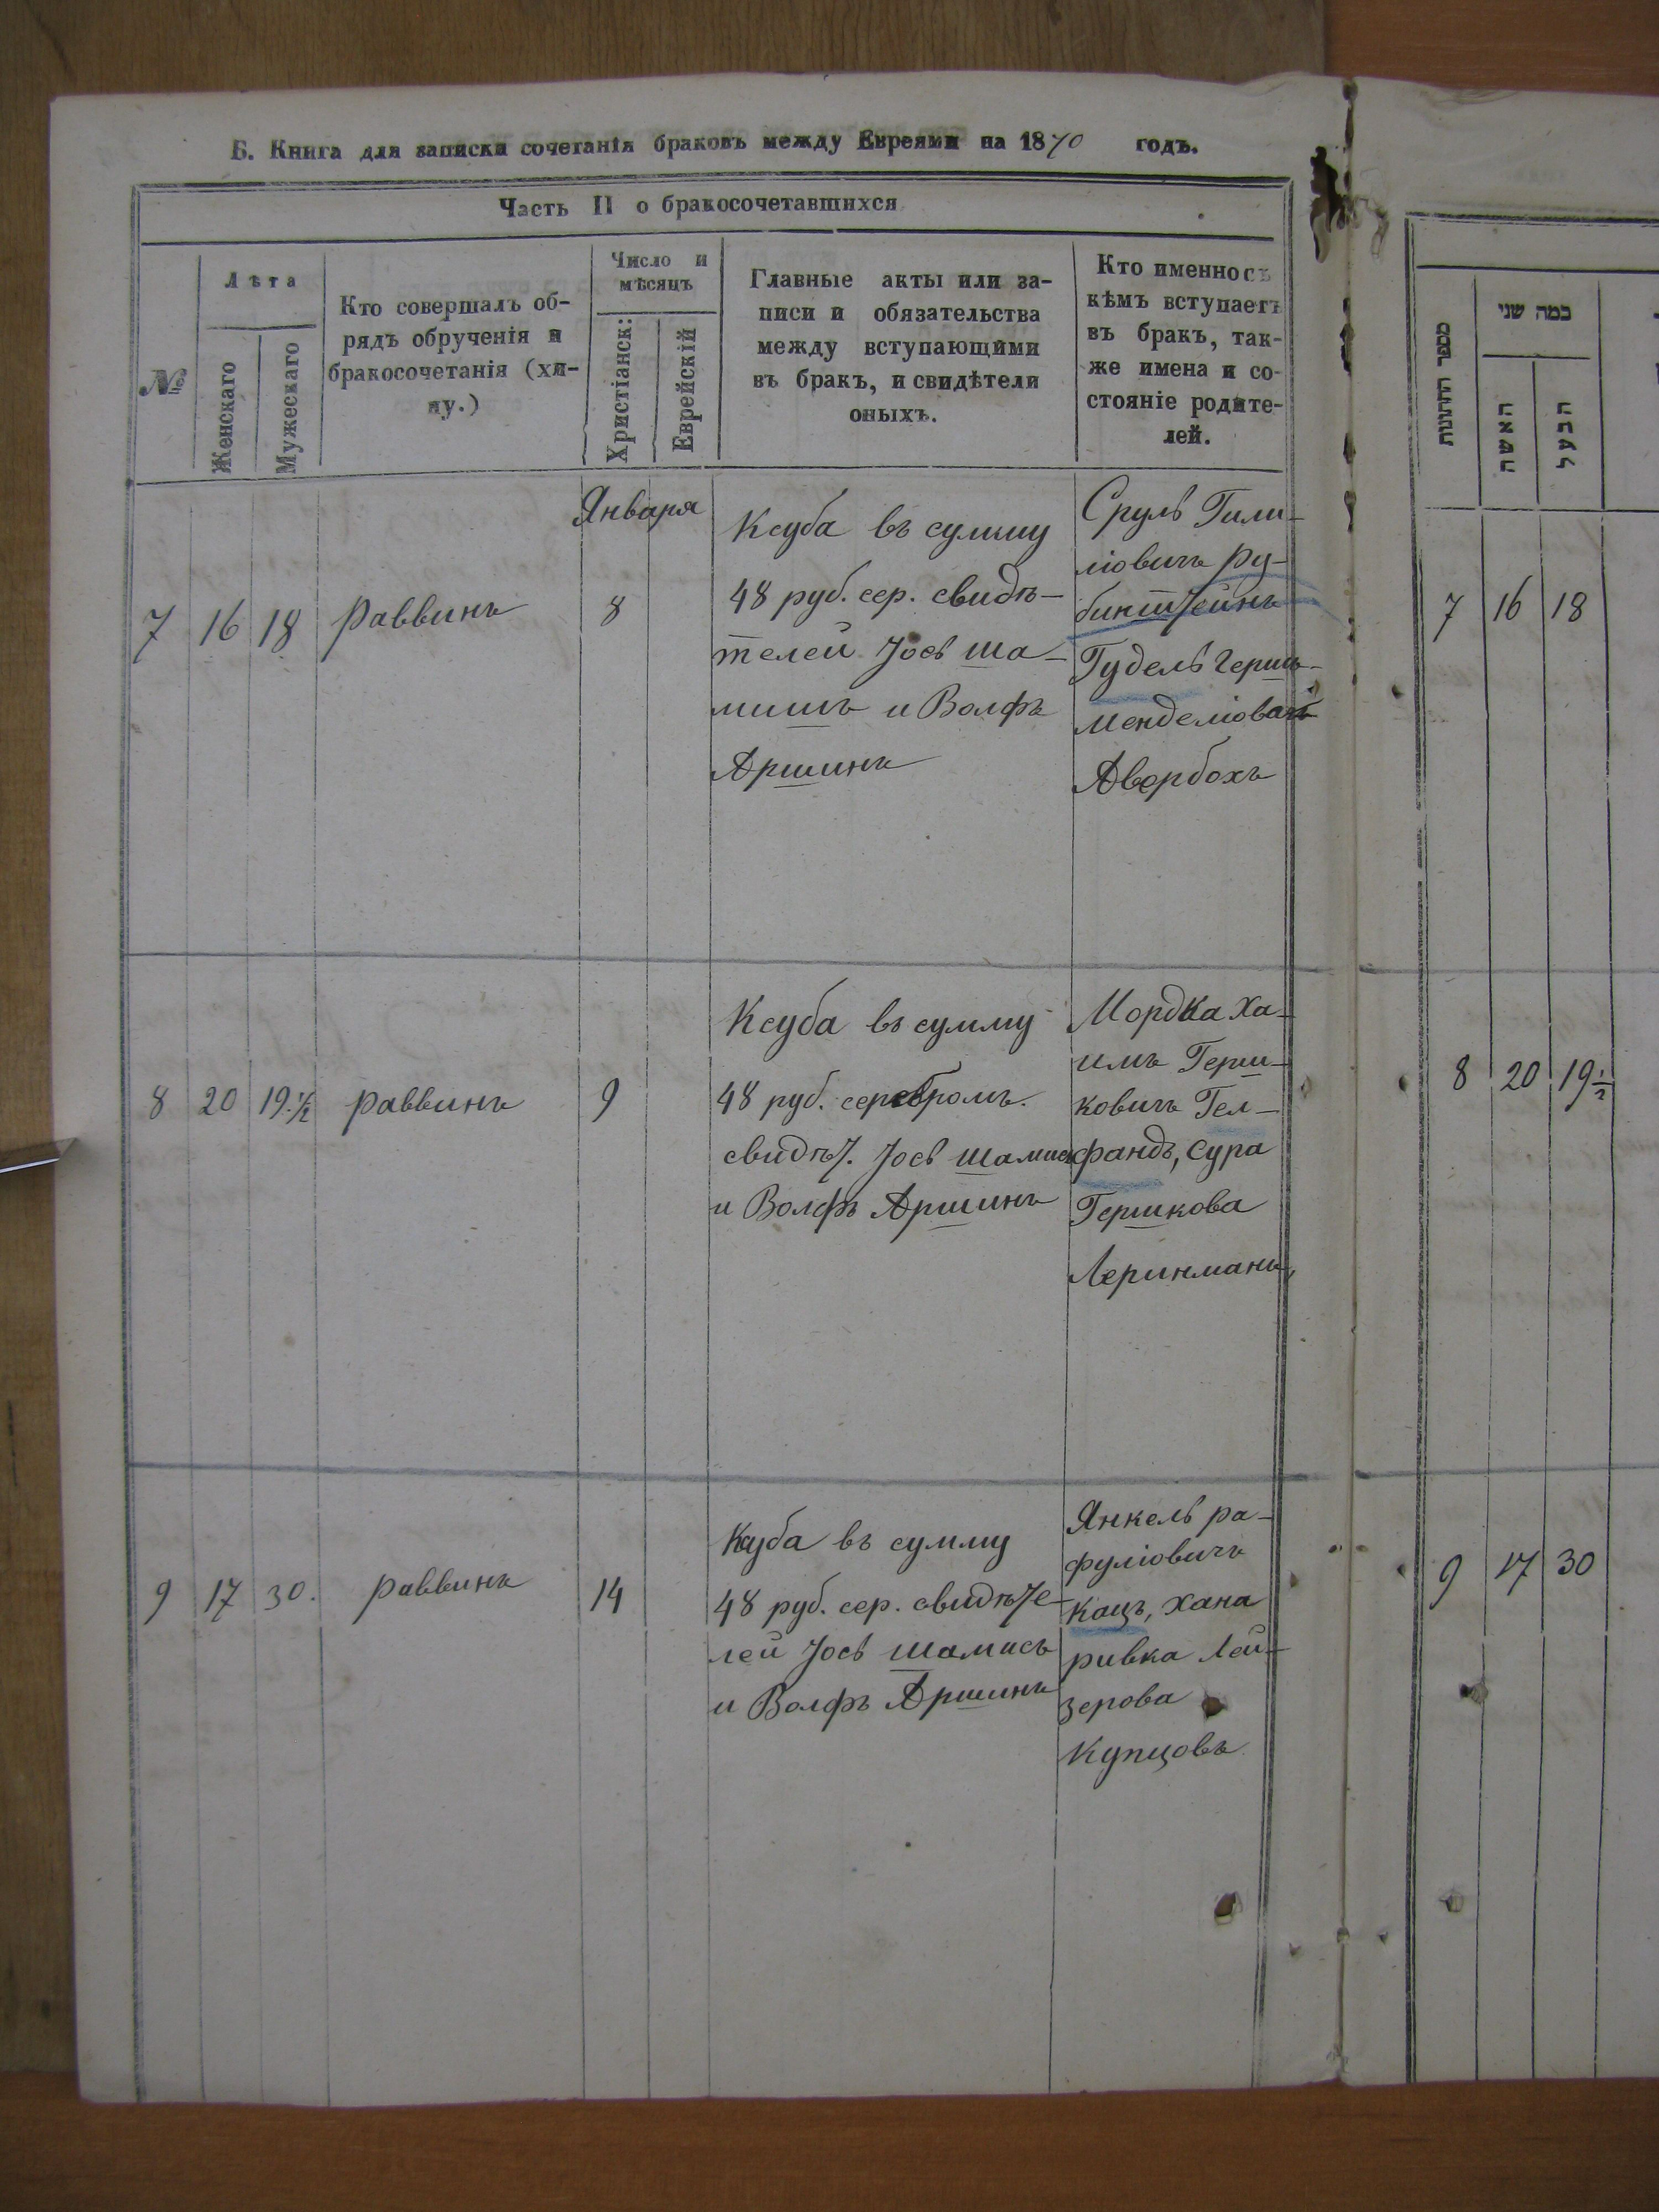 Б. Книга для записки сочетанія браковъ между Евреями на 1870 годъ.
Часть II о бракосочетавшихся
№
Лѣта
Женскаго
Мужескаго
Кто совершалъ об-
рядъ обрученія и
бракосочетанія (хи-
пу.)
Число и
мѣсяцъ
Христіанск:
Еврейскій
Главные акты или за-
писи и обязательства
между вступающими
въ бракъ, и свидѣтели
оныхъ.
Кто именно съ
кѣмъ вступаетъ
въ бракъ, так-
же имена и со-
стояніе родите-
лей.
Января
7 16 18 Раввинъ 8
Ксуба въ сумму
48 руб. сер. свидѣ-
телей Іосъ Ша-
мишъ и Волфъ
Аршинъ
Сруль Гили-
ліовичъ Ру-
бинштейнъ
Гудель Герш-
менделіовичъ
Авербохъ
8 20 19.½ Раввинъ 9
Ксуба въ сумму
48 руб. серебромъ.
свидѣт. Іось Шамись
и Волфъ Аршинъ
Мордка Ха-
имъ Герш-
ковичъ Гел-
фандъ, Сура
Гершкова
Леринманъ,
9 17 30. Раввинъ 14
Ксуба въ сумму
48 руб. сер. свидѣте-
лей Іось Шамись
и Волфъ Аршинъ
Янкель Ра-
фуліовичъ
Кацъ, Хана
Ривка Лей-
зерова
Купцовъ
מספר החתונות
כמה שני
האשה
הבעל
7 16 18
8 20 19½
9 17 30